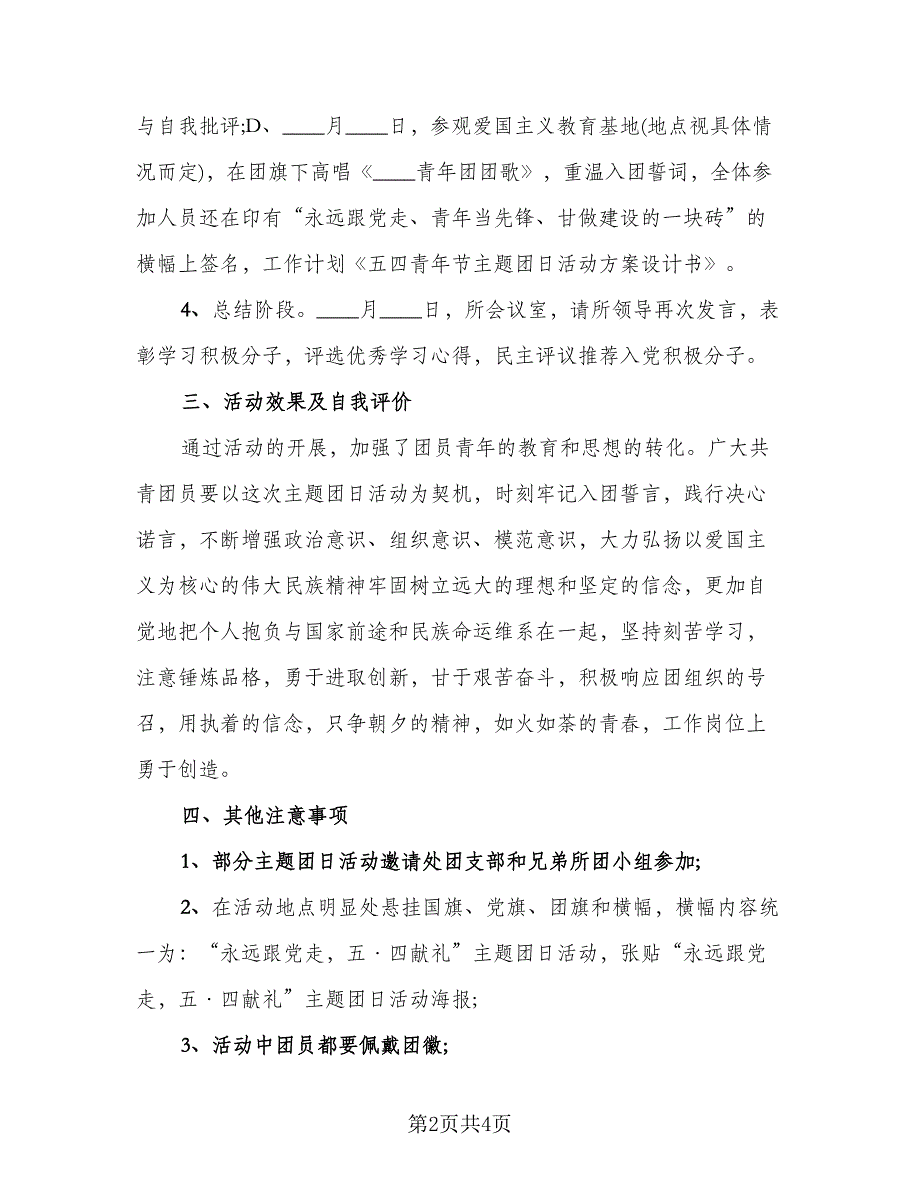 与自我批评;D、____月____日，参观爱国主义教育基地(地点视具体情
况而定)，在团旗下高唱《____青年团团歌》，重温入团誓词，全体参
加人员还在印有“永远跟党走、青年当先锋、甘做建设的一块砖”的
横幅上签名，工作计划《五四青年节主题团日活动方案设计书》。
4、总结阶段。____月____日，所会议室，请所领导再次发言，表
彰学习积极分子，评选优秀学习心得，民主评议推荐入党积极分子。
三、活动效果及自我评价
通过活动的开展，加强了团员青年的教育和思想的转化。广大共
青团员要以这次主题团日活动为契机，时刻牢记入团誓言，践行决心
诺言，不断增强政治意识、组织意识、模范意识，大力弘扬以爱国主
义为核心的伟大民族精神牢固树立远大的理想和坚定的信念，更加自
觉地把个人抱负与国家前途和民族命运维系在一起，坚持刻苦学习，
注意锤炼品格，勇于进取创新，甘于艰苦奋斗，积极响应团组织的号
召，用执着的信念，只争朝夕的精神，如火如荼的青春，工作岗位上
勇于创造。
四、其他注意事项
1、部分主题团日活动邀请处团支部和兄弟所团小组参加;
2、在活动地点明显处悬挂国旗、党旗、团旗和横幅，横幅内容统
一为：“永远跟党走，五·四献礼”主题团日活动，张贴“永远跟党
走，五·四献礼”主题团日活动海报;
3、活动中团员都要佩戴团徽;
第2页共4页